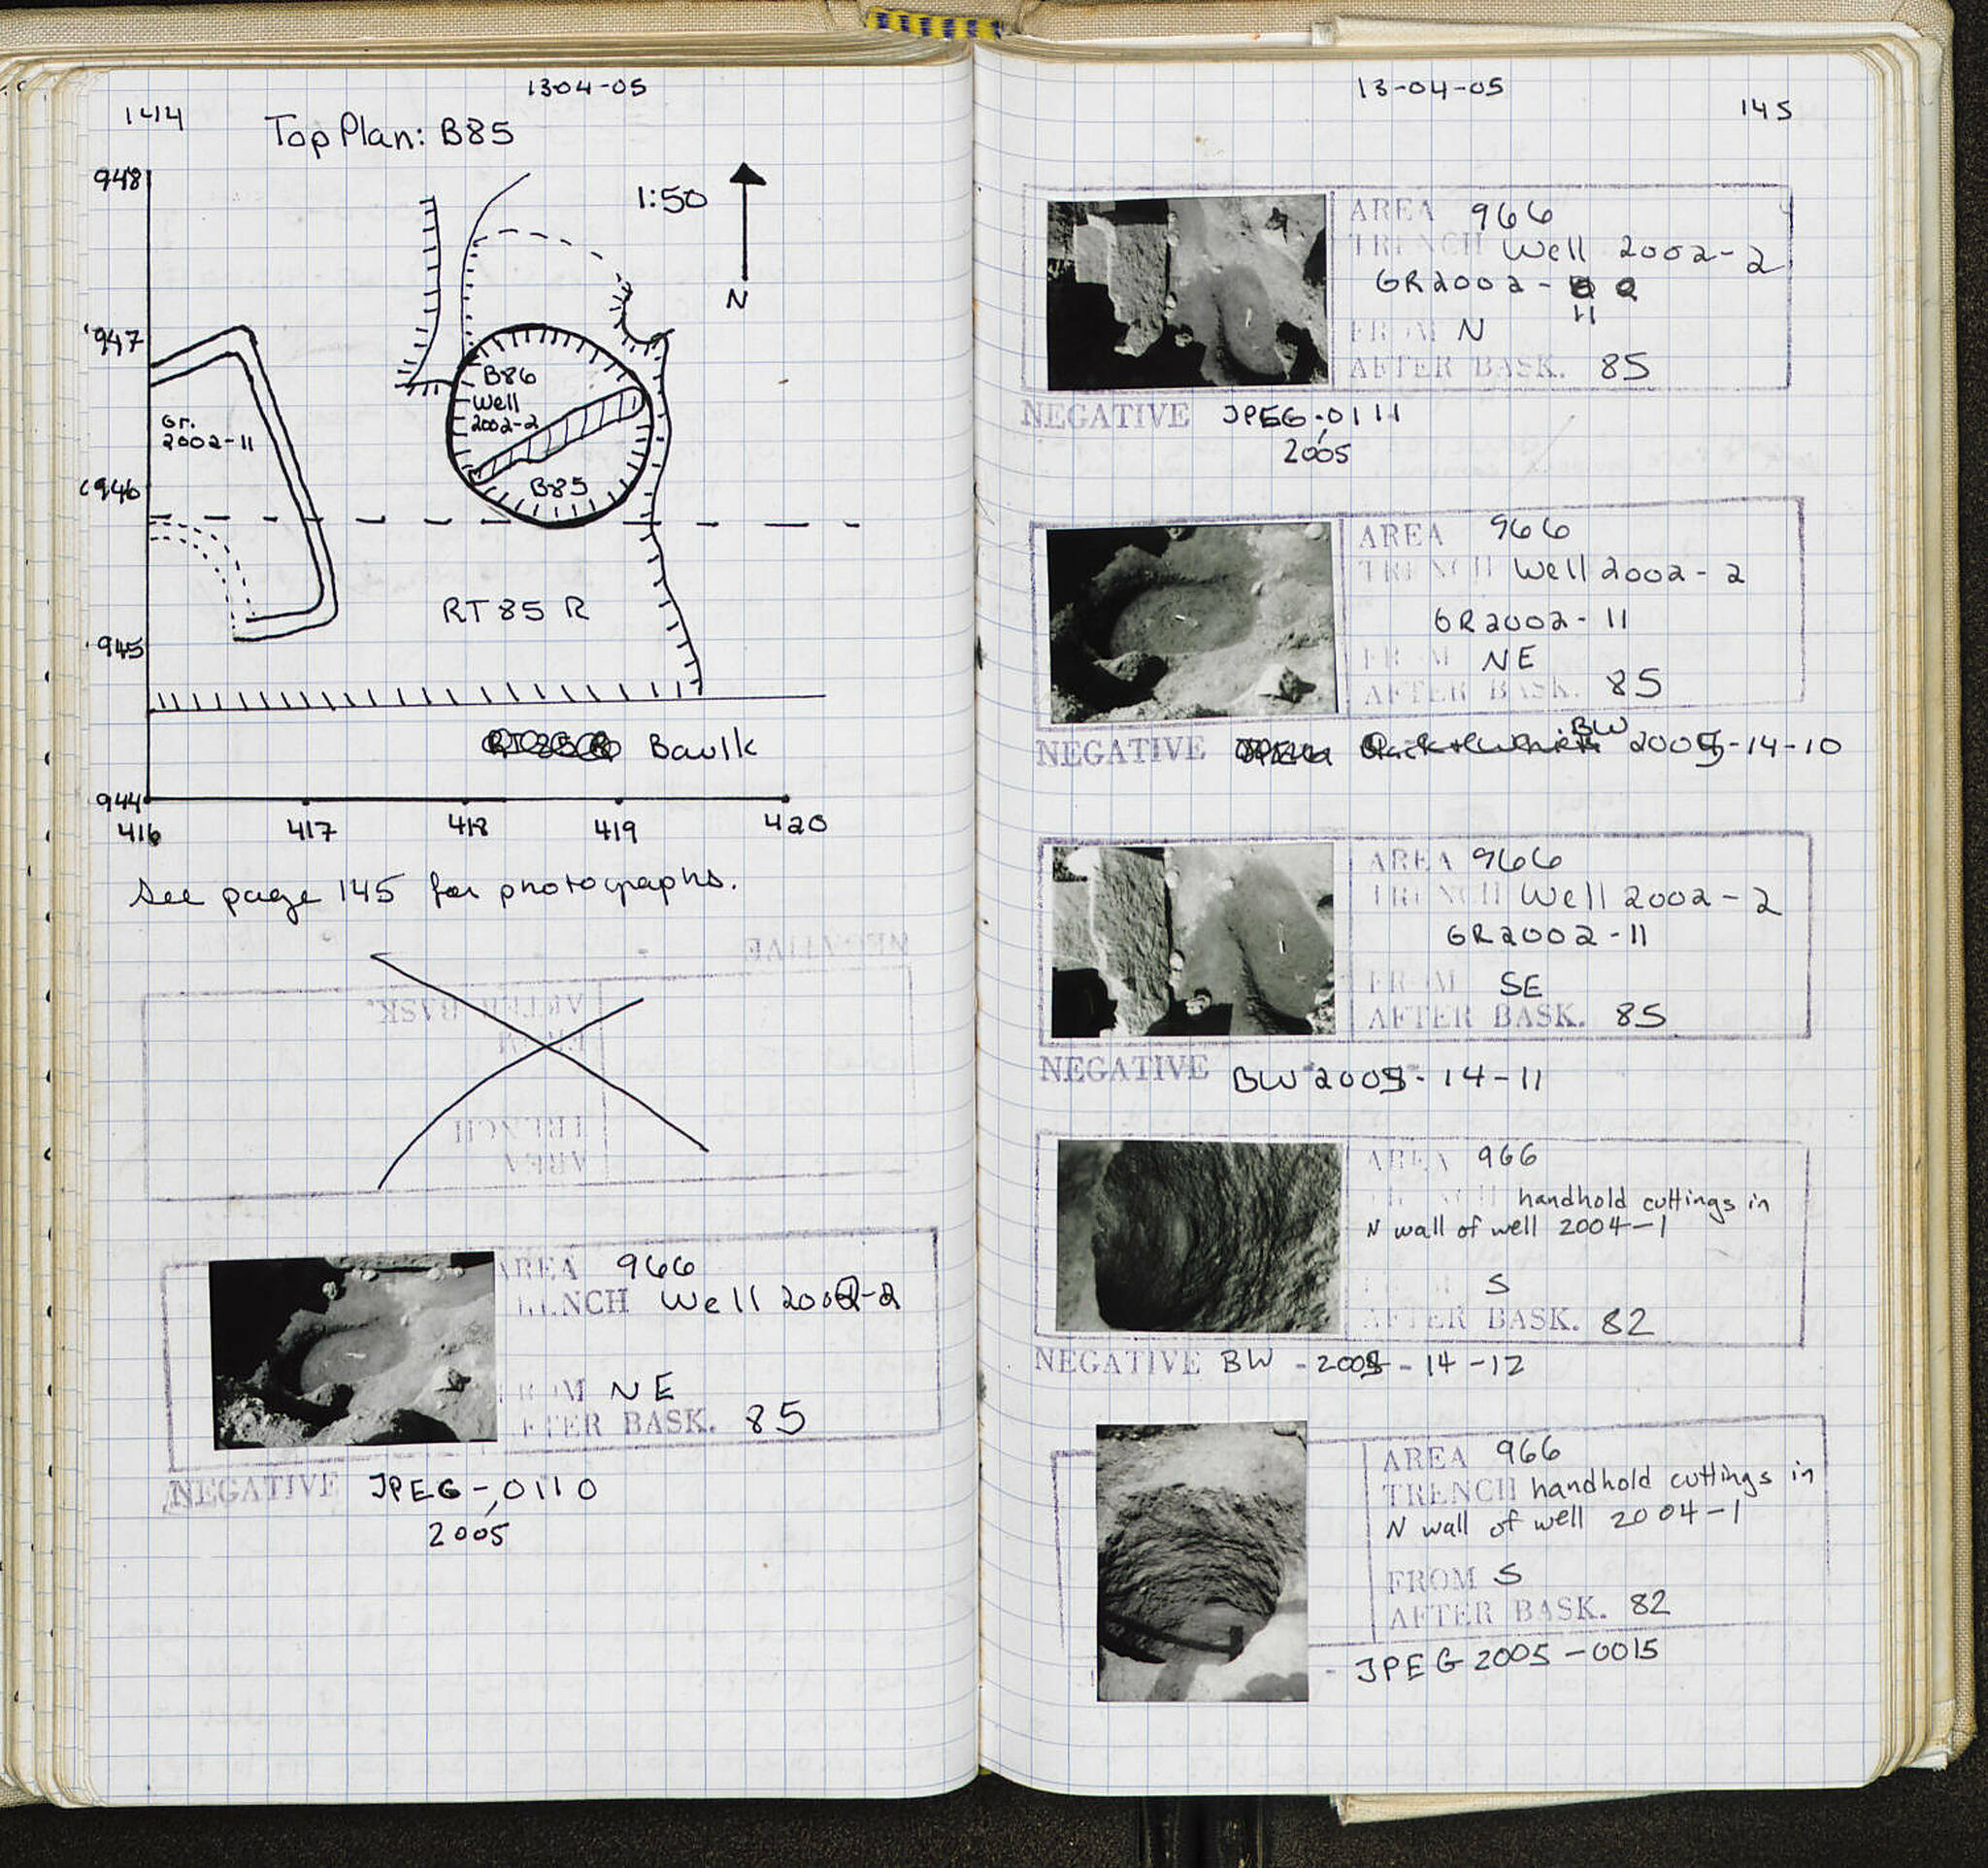 1304-05
144
Top Plan: B85
948
1:50
N
947
B86
Well
2002-2
Gr.
2002-11
946
B85
RT 85 R
945
Baulk
944
416 417 418 419 420
See page 145 for photographs.
NEGATIVE
AFTER BASK.
FROM
TRENCH
AREA
AREA 966
TRENCH Well 2002-2
FROM NE
AFTER BASK. 85
NEGATIVE JPEG-,0110
2005
13-04-05
145
AREA 966
TRENCH Well 2002-2
GR2002-
11
FROM N
AFTER BASK. 85
NEGATIVE JPEG-,0111
2005
AREA 966
TRENCH Well 2002-2
GR2002-11
FROM NE
AFTER BASK. 85
NEGATIVE BW 2005-14-10
AREA 966
TRENCH Well 2002-2
GR2002-11
FROM SE
AFTER BASK. 85
NEGATIVE BW 2005-14-11
AREA 966
TRENCH handhold cuttings in
N wall of well 2004-1
FROM S
AFTER BASK. 82
NEGATIVE BW - 2005 - 14 - 12
AREA 966
TRENCH handhold cuttings in
N wall of well 2004-1
FROM S
AFTER BASK. 82
- JPEG 2005-0015